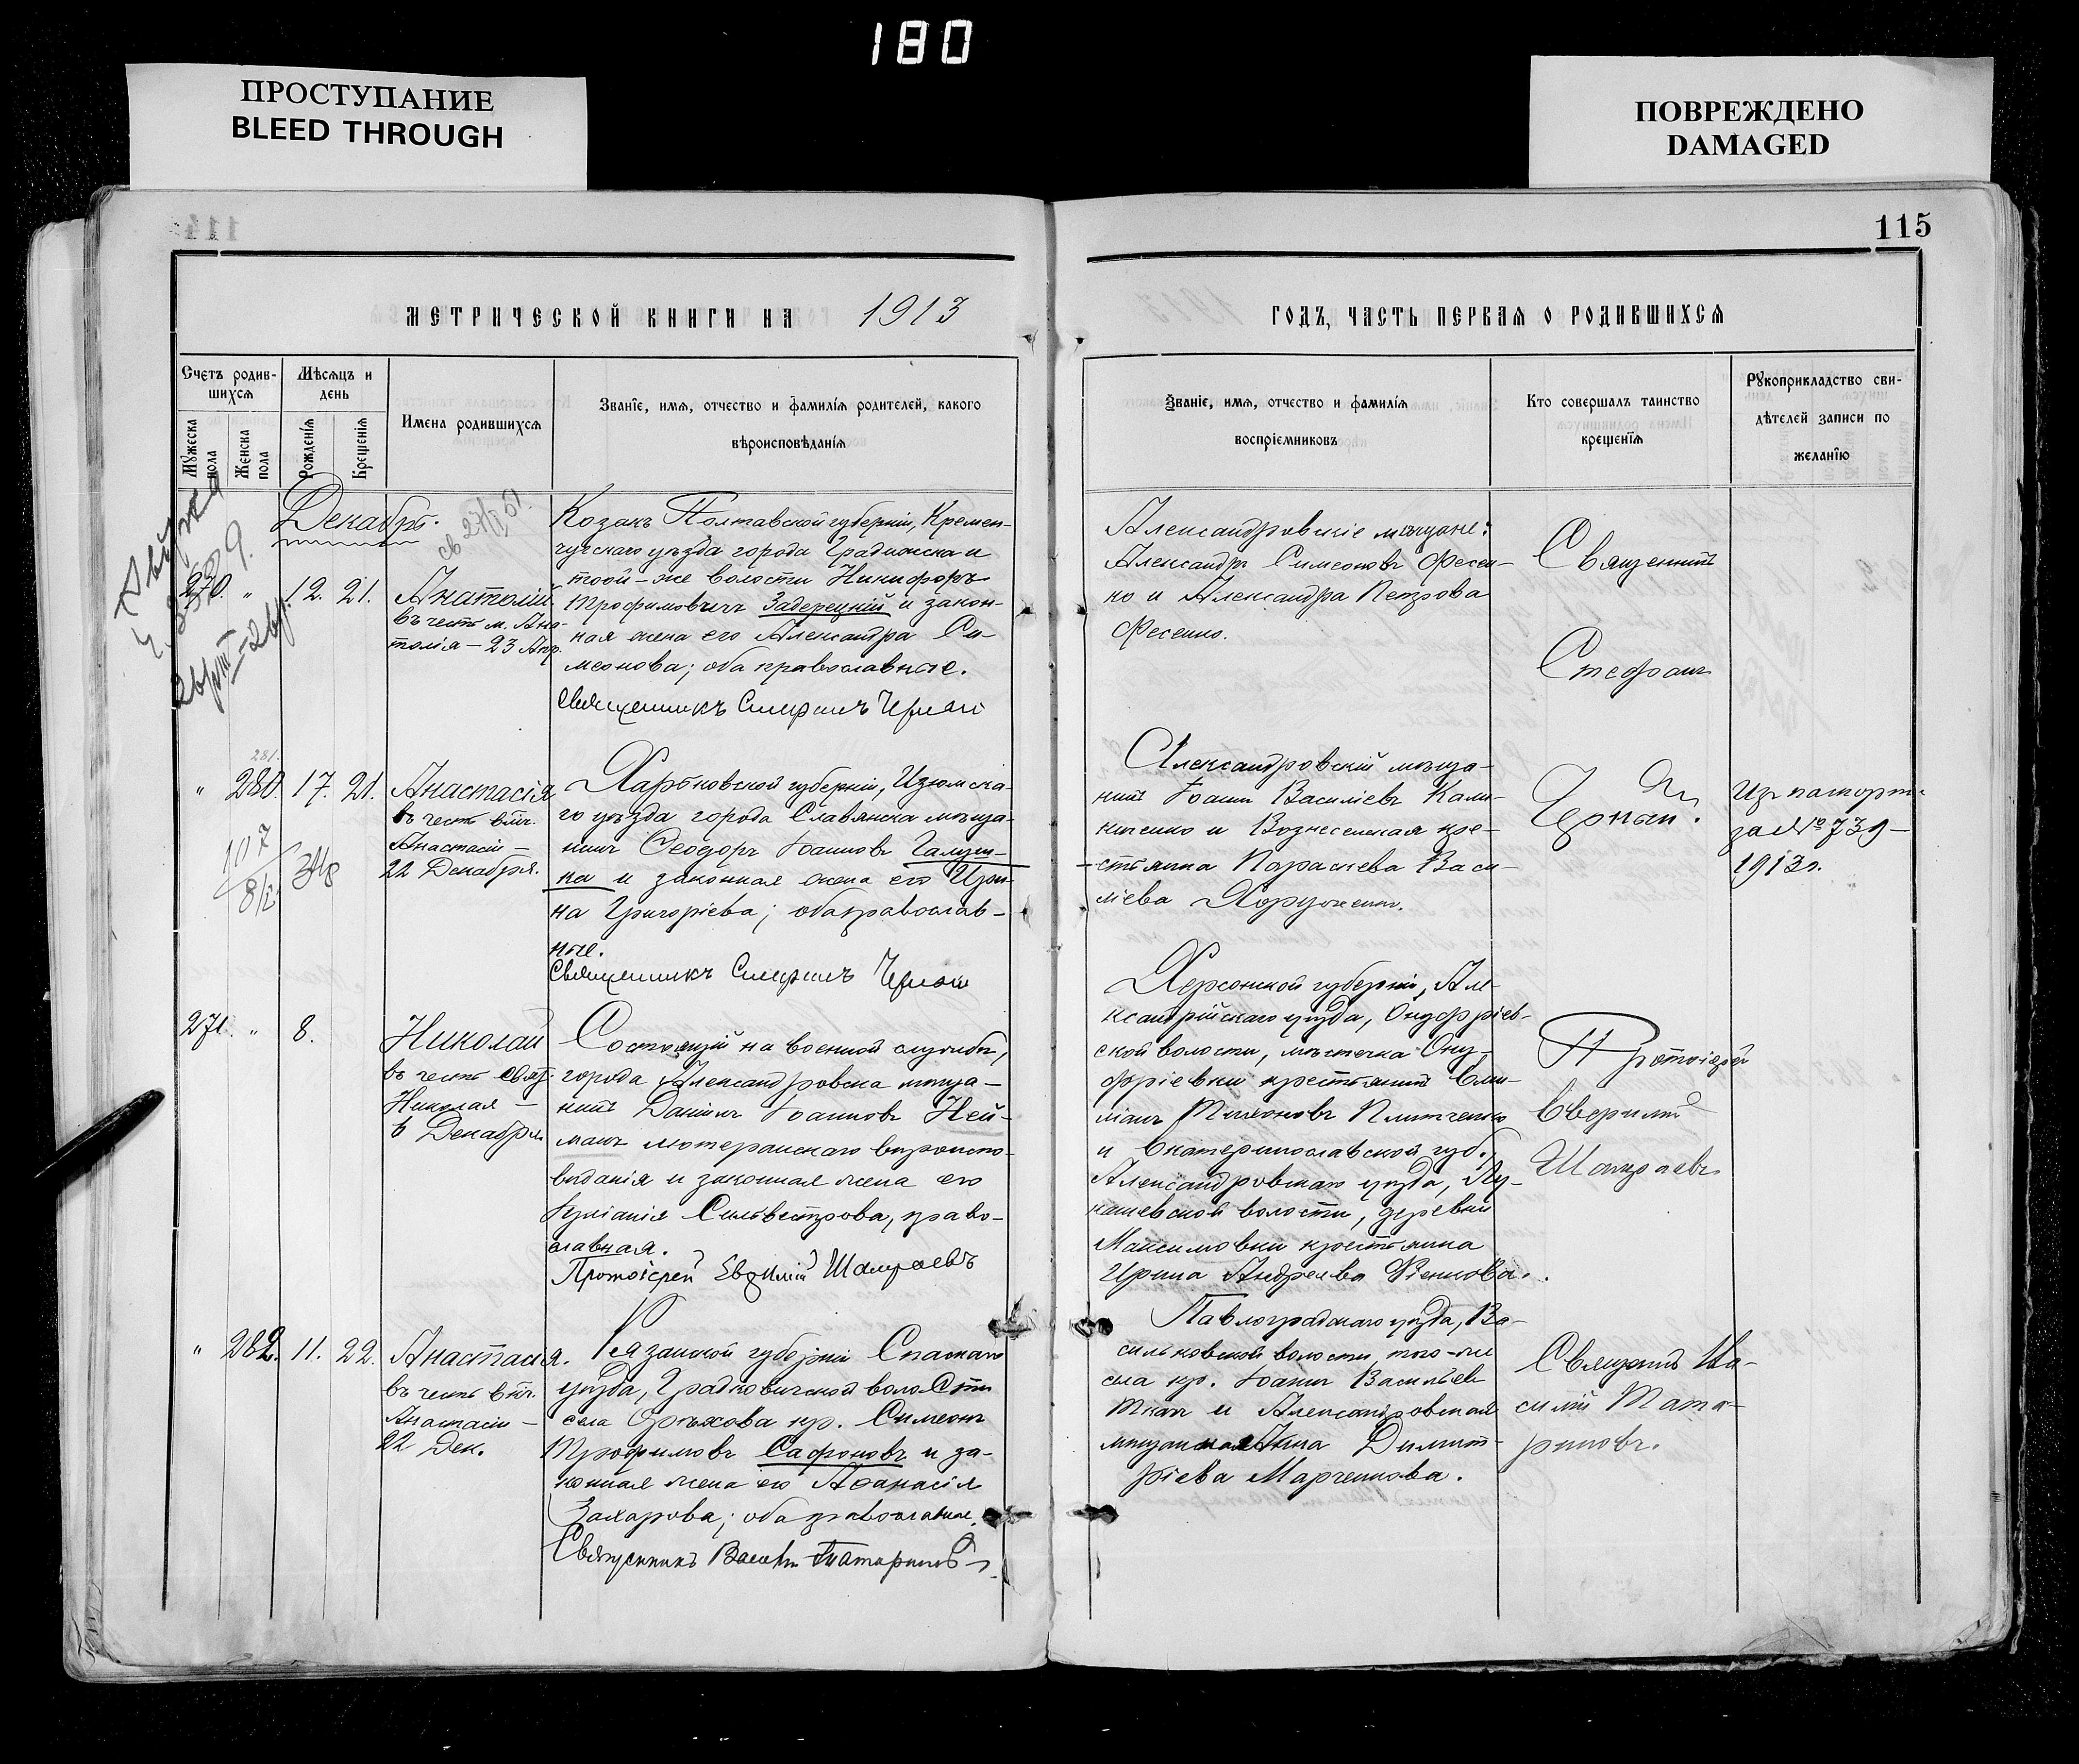 180
ПРОСТУПАНИЕ
BLEED THROUGH
ПОВРЕЖДЕНО
DAMAGED
115
МЕТРИЧЕСКОЙ КНИГИ НА 1913
ГОДЪ, ЧАСТЬ ПЕРВАЯ О РОДИВШИХСЯ
Счетъ родив-
шихся
Мужеска пола
Женска пола
Мѣсяцъ и
день
Рожденія
Крещенія
Имена родившихся
Званіе, имя, отчество и фамилія родителей, какого
вѣроисповѣданія
Званіе, имя, отчество и фамилія
воспріемниковъ
Кто совершалъ таинство
крещенія
Рукоприкладство сви-
дѣтелей записи по
желанію
Декабрь.
270. " 12. 21.
Анатолій
въ честь м. Ана-
толія – 23 Апр.
Козакъ Полтавской губерніи, Кремен-
чугскаго уѣзда города Градижска и
той-же волости Никифоръ
Трофимовичъ Задерецкій и закон-
ная жена его Александра Си-
меонова; оба православные.
Священникъ Стефанъ Чернай
Александровскіе мѣщане:
Александръ Симеоновъ Фесен-
ко и Александра Петрова
Фесенко.
Священникъ
Стефанъ
Чернай.
281.
" 280. 17. 21.
Анастасія
въ честь вмч.
Анастасіи –
22 Декабря.
Харьковской губерніи, Изюмска-
го уѣзда города Славянска мѣща-
нинъ Ѳеодоръ Іоанновъ Галуш-
ка и законная жена его Ири-
на Григоріева; оба православ-
ные.
Священникъ Стефанъ Чернай
Александровскій мѣща-
нинъ Іоаннъ Василіевъ Кали-
ниченко и Вознесенская кре-
стьянка Параскева Васи-
ліева Хоруженко.
за № 739 –
1913 г.
271. " 8.
Николай
въ честь Свят.
Николая –
6 Декабря
Состоящій на военной службѣ,
города Александровска мѣща-
нинъ Даніилъ Іоанновъ Ней-
манъ лютеранскаго вѣроиспо-
вѣданія и законная жена его
Іуліанія Сильвестрова, право-
славная.
Херсонской губерніи, Але-
ксандрійскаго уѣзда, Онуфріев-
ской волости, мѣстечка Ону-
фріевки крестьянинъ Еми-
и Екатеринославской губ.,
Александровскаго уѣзда,
волости, деревни
Максимовки крестьянка
Ирина Андреева
Протоіерей
" 282. 11. 22.
Анастасія.
въ честь вмч.
Анастасіи –
22 Дек.
Рязанской губерніи Спасскаго
уѣзда, волости
села Орѣхова кр. Симеонъ
Трофимовъ Сафоновъ и за-
конная жена его Аѳанасія
Захарова; оба православные.
Священникъ Василій Татариновъ
Павлоградскаго уѣзда, Ва-
сильковской волости, того-же
села кр. Іоаннъ Васильевъ
Ткач и Александровская
мѣщанка Анна Димит-
ріева Марченкова.
Священникъ Ва-
силій Тата-
риновъ.